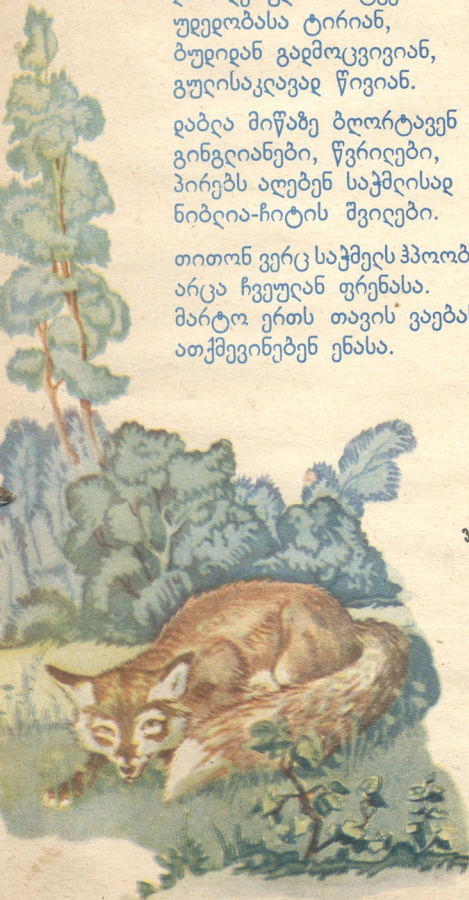 უდედობასა ტირიან,
ბუდიდან გადმოცვივიან,
გულისაკლავად წივიან.
დაბლა მიწაზე ბღორტავენ
გინგლიანები, წვრილები,
პირებს აღებენ საჭმლისად
ნიბლია-ჩიტის შვილები.
თითონ ვერც საჭმელს ჰპოობ
არცა ჩვეულან ფრენასა.
მარტო ერთს თავის ვაებას
ათქმევინებენ ენასა.